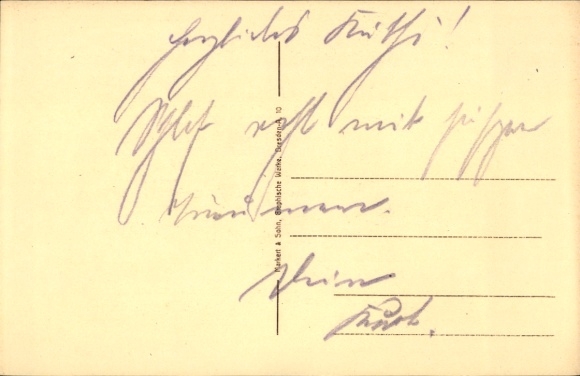 Herzliches
Schlaf recht mit süßen
Träumen.
Dein
Kurt.
Markert & Sohn, Graphische Werke, Dresden-A 10